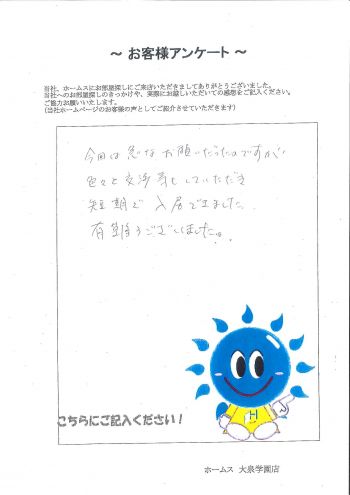 ～ お客様アンケート ～
当社、ホームスにお部屋探しにご来店いただきましてありがとうございました。
当社へのお部屋探しのきっかけや、実際にお越しいただいての感想をご記入ください。
ご協力お願いいたします。
(当社ホームページのお客様の声としてご紹介させていただきます)
今回は急なお願いだったのですが
色々と交渉等していただき
短期で入居できました。
有難うございました。
H
こちらにご記入ください！
ホームス 大泉学園店